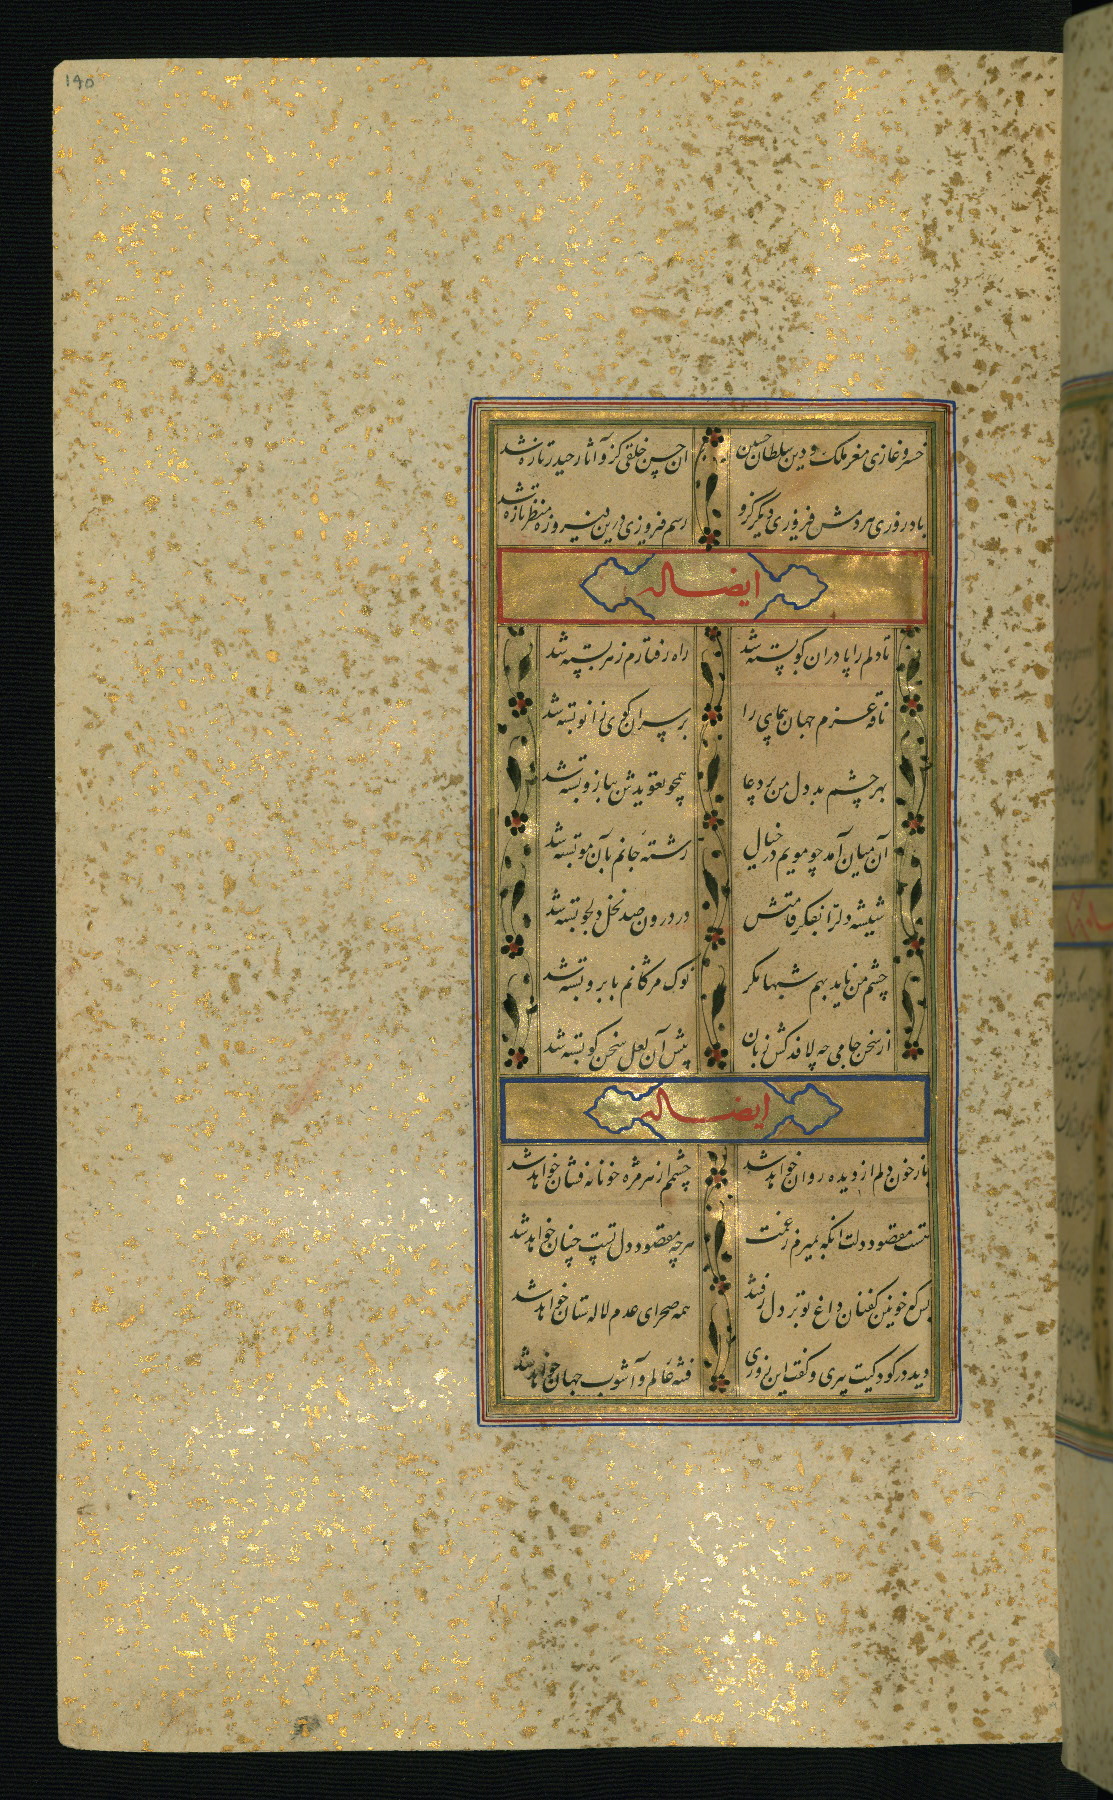 ۱۹۵
خسرو غازی مغز ملک و دین سلطان حسین
آن حسین خلقی کزو آثار حیدر تازه شد
باد روزی هر دمش فیروزی دیگر کزو
رسم فیروزی درین فیروزه منظر تازه شد
ایضا له
تا دلم را پا دران کو بسته شد
راه رفتارم ز هر سو بسته شد
ناقه عزم جهان پیمای را
بر سر آن کوی زانو بسته شد
بهر چشم بد دل من برد چا
همچو تعویذش ببازو بسته شد
آن میان آمد چو مویم در خیال
رشته جانم بآن مو بسته شد
شیشه دلرا بفکر قامتش
در درون صد نخل دلجو بسته شد
چشم من ناید بهم شبها مگر
نوک مژگانم بابرو بسته شد
از سخن جامی چه لافد کش زبان
پیش آن لعل سخن گو بسته شد
ایضا له
باز خون دلم از دیده روان خواهد شد
چشمم از هر مژه خونابه فشان خواهد شد
هست مقصود دلت آنکه بمیرم ز غمت
هر چه مقصود دل تست چنان خواهد شد
بس که خونین کفنان داغ تو بر دل رفتند
همه صحرای عدم لاله ستان خواهد شد
دید در کودکیت پیری و گفت این روزی
فتنه عالم و آشوب جهان خواهد شد